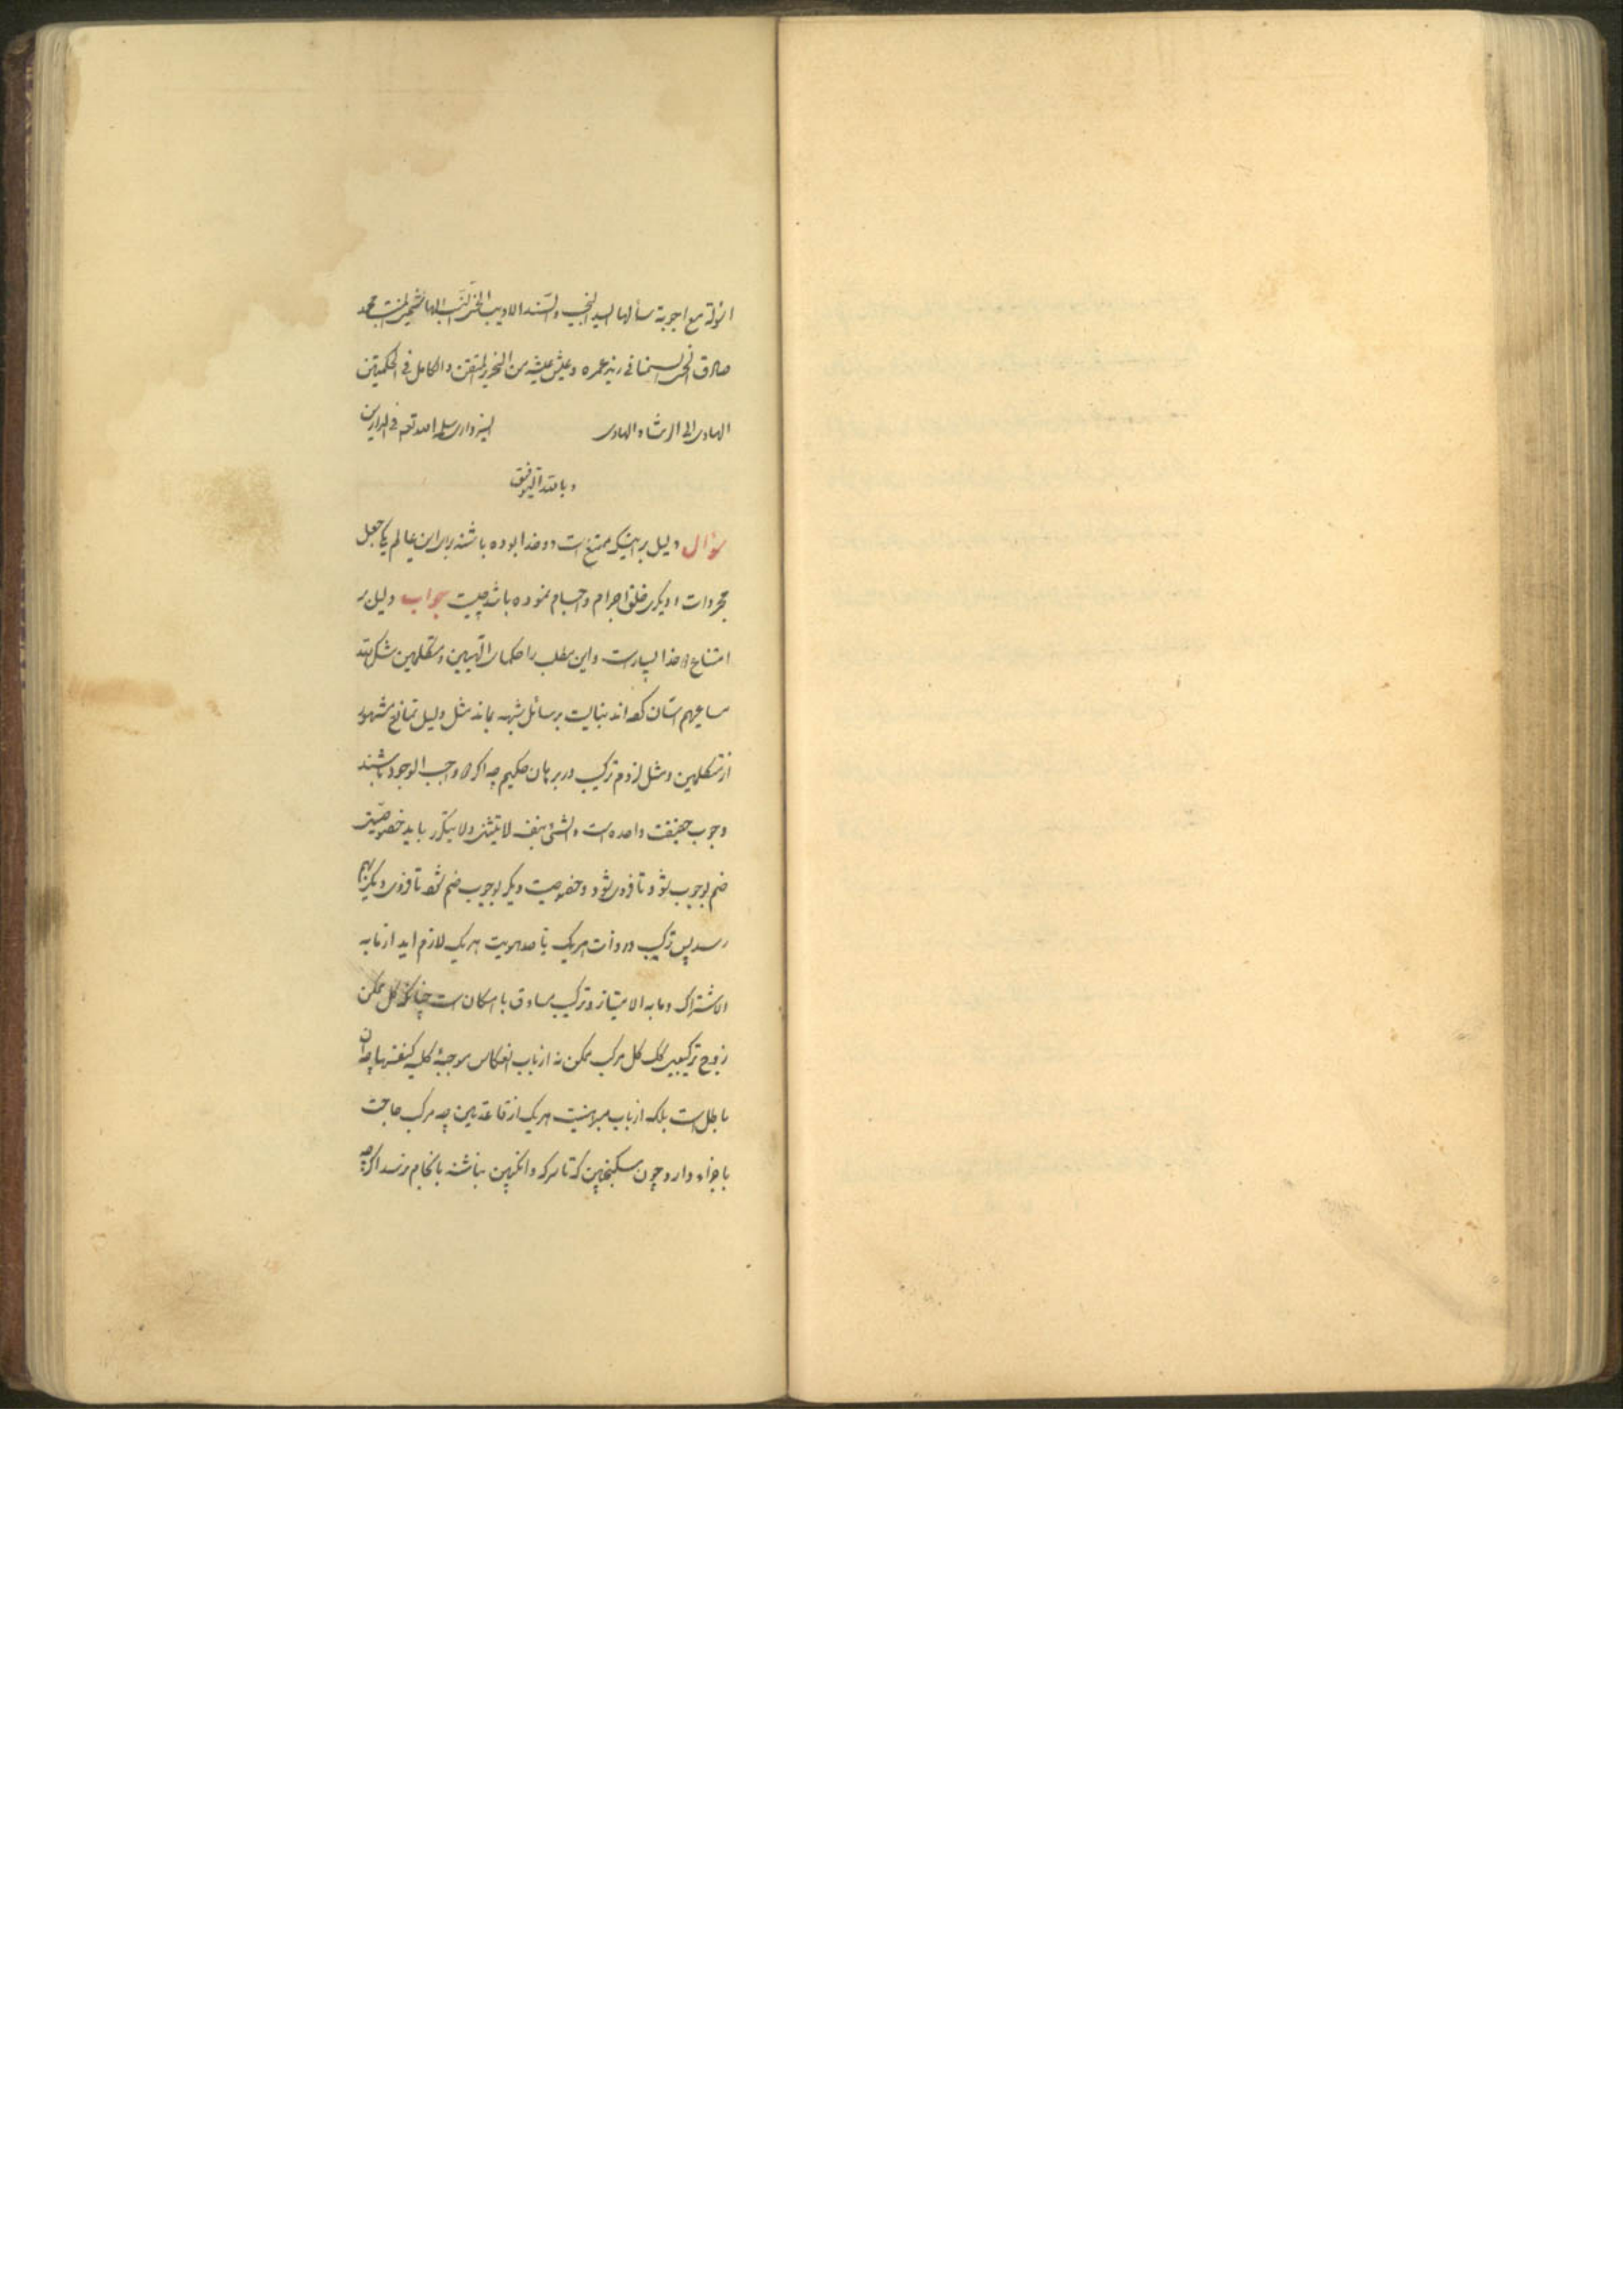 اسولة مع اجوبة سألها السید النجیب والسند الادیب الحسیب النسیب محمد
صادق السمنانی زید عمره وعیش عیشه من النحریر المتقن والکامل فی الحکمتین
الهادی الی الرشاد الهادی السبزواری سلمه الله تعالی فی الدارین
وبالله التوفیق
سؤال دلیل بر اینکه ممتنع است دو خدا بوده باشند برای این عالم یکی جعل
مجردات و دیگری خلق اجرام و اجسام نموده باشد چیست جواب دلیل بر
امتناع دو خدا بسیار است و این مطلب را حکمای الهیین و متکلمین شکر الله
مساعیهم
از متکلمین و مثل لزوم ترکیب در برهان حکیم چه اکر دو واجب الوجود باشند
وجوب حقیقت واحده است والشیء بنفسه لا یتثنی ولا یتکرر باید خصوصیتی
ضم بوجوب شود تا فردی شود و خصوصیت دیکر بوجوب ضم شود تا فردی دیکر بهم
رسد پس ترکیب در ذات هریک یا در هویت هریک لازم اید از ما به
الاشتراک و ما به الامتیاز و ترکیب مساوق با امکان است چنانکه کل ممکن
زوج ترکیبی کل مرکب ممکن نه از باب انعکاس موجبه کلیه کنفسها چه ان
باطل است بلکه از باب مبرهنیت هریک از قاعدتین چه مرکب حاجت
باجزاء دارد چون سکنجبین که تا سرکه و انکبین نباشند بانجام نرسد اکرچه